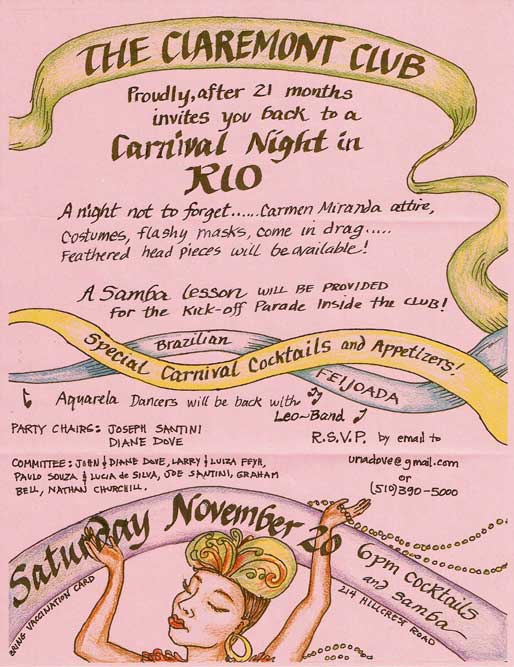 THE CLAREMONT CLUB
Proudly, after 21 months
invites you back to a
Carnival Night in
RIO
A night not to forget......Carmen Miranda attire,
Costumes, flashy masks, come in drag.....
Feathered head pieces will be available!
A Samba lesson WILL BE PROVIDED
for the Kick-off Parade Inside the CLUB!
Brazilian
Special Carnival Cocktails and Appetizers!
FEIJOADA
Aquarela Dancers will be back with
Leo~Band
PARTY CHAIRS: JOSEPH SANTINI
DIANE DOVE
R.S.V.P. by email to
COMMITTEE: JOHN & DIANE DOVE, LARRY & LUIZA FEYH,
PAULO SOUZA & LUCIA de SILVA, JOE SANTINI, GRAHAM
BELL, NATHAN CHURCHILL.
uriadove@gmail.com
or
(510)390-5000
Saturday November 20
6pm cocktails
and samba
214 HILLCREST ROAD
BRING VACCINATION CARD